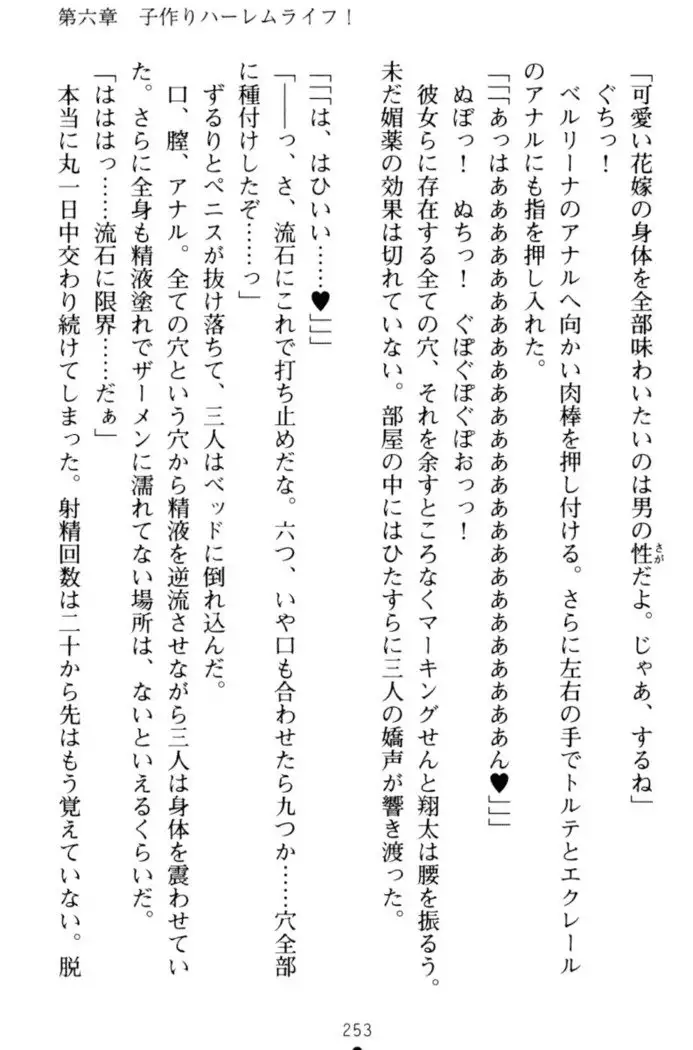 第六章　子作りハーレムライフ！
「可愛い花嫁の身体を全部味わいたいのは男の性だよ。じゃあ、するね」
さが
ぐちっ！
ベルリーナのアナルへ向かい肉棒を押し付ける。さらに左右の手でトルテとエクレール
のアナルにも指を押し入れた。
「「「あっはあああああああああああああああああああああああああああん♥」」」
ぬぽっ！　ぬちっ！　ぐぽぐぽぐぽおっっ！
彼女らに存在する全ての穴、それを余すところなくマーキングせんと翔太は腰を振るう。
未だ媚薬の効果は切れていない。部屋の中にはひたすらに三人の嬌声が響き渡った。
「「「は、はひいい……♥」」」
「――っ、さ、流石にこれで打ち止めだな。六つ、いや口も合わせたら九つか……穴全部
に種付けしたぞ……っ」
ずるりとペニスが抜け落ちて、三人はベッドに倒れ込んだ。
口、膣、アナル。全ての穴という穴から精液を逆流させながら三人は身体を震わせてい
た。さらに全身も精液塗れでザーメンに濡れてない場所は、ないといえるくらいだ。
「はははっ……流石に限界……だぁ」
本当に丸一日中交わり続けてしまった。射精回数は二十から先はもう覚えていない。脱
253